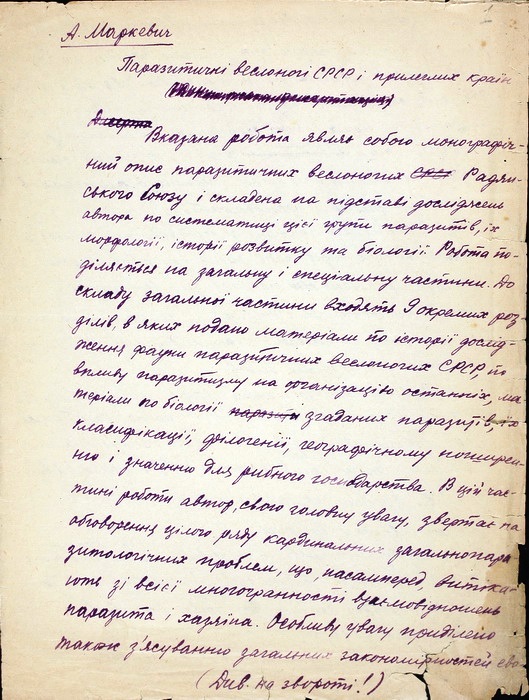 А. Маркевич
Паразитичні веслоногі СРСР і прилеглих країн
Вказана робота являє собою монографіч-
ний опис паразитичних веслоногих Радян-
ського Союзу і складена на підставі досліджень
автора по систематиці цієї групи паразитів, їх
морфології, історії розвитку та біології. Робота по-
діляється на загальну і спеціальну частини. До
складу загальної частини входять 9 окремих роз-
ділів, в яких подано матеріали по історії дослід-
ження фауни паразитичних веслоногих СРСР, по
впливу паразитизму на організацію останніх, ма-
теріали по біології згаданих паразитів, їх
класифікації, філогенії, географічному пошире-
ню і значенню для рибного господарства. В цій час-
тині роботи автор, свою головну увагу, звертає на
обговорення цілого ряду кардинальних загальнопара-
зитологічних проблем, що, насамперед, витіка-
ють зі всієї многогранності взаємовідношень
паразита і хазяїна. Особливу увагу приділено
також з'ясуванню загальних закономірностей ево
(Див. на звороті!)